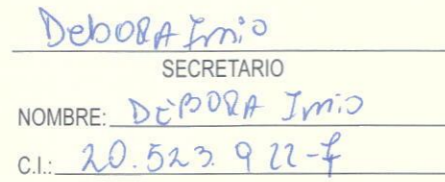 Debora Irrio
SECRETARIO
NOMBRE: DEBORA Irrio
C.I.: 20.523.922-f